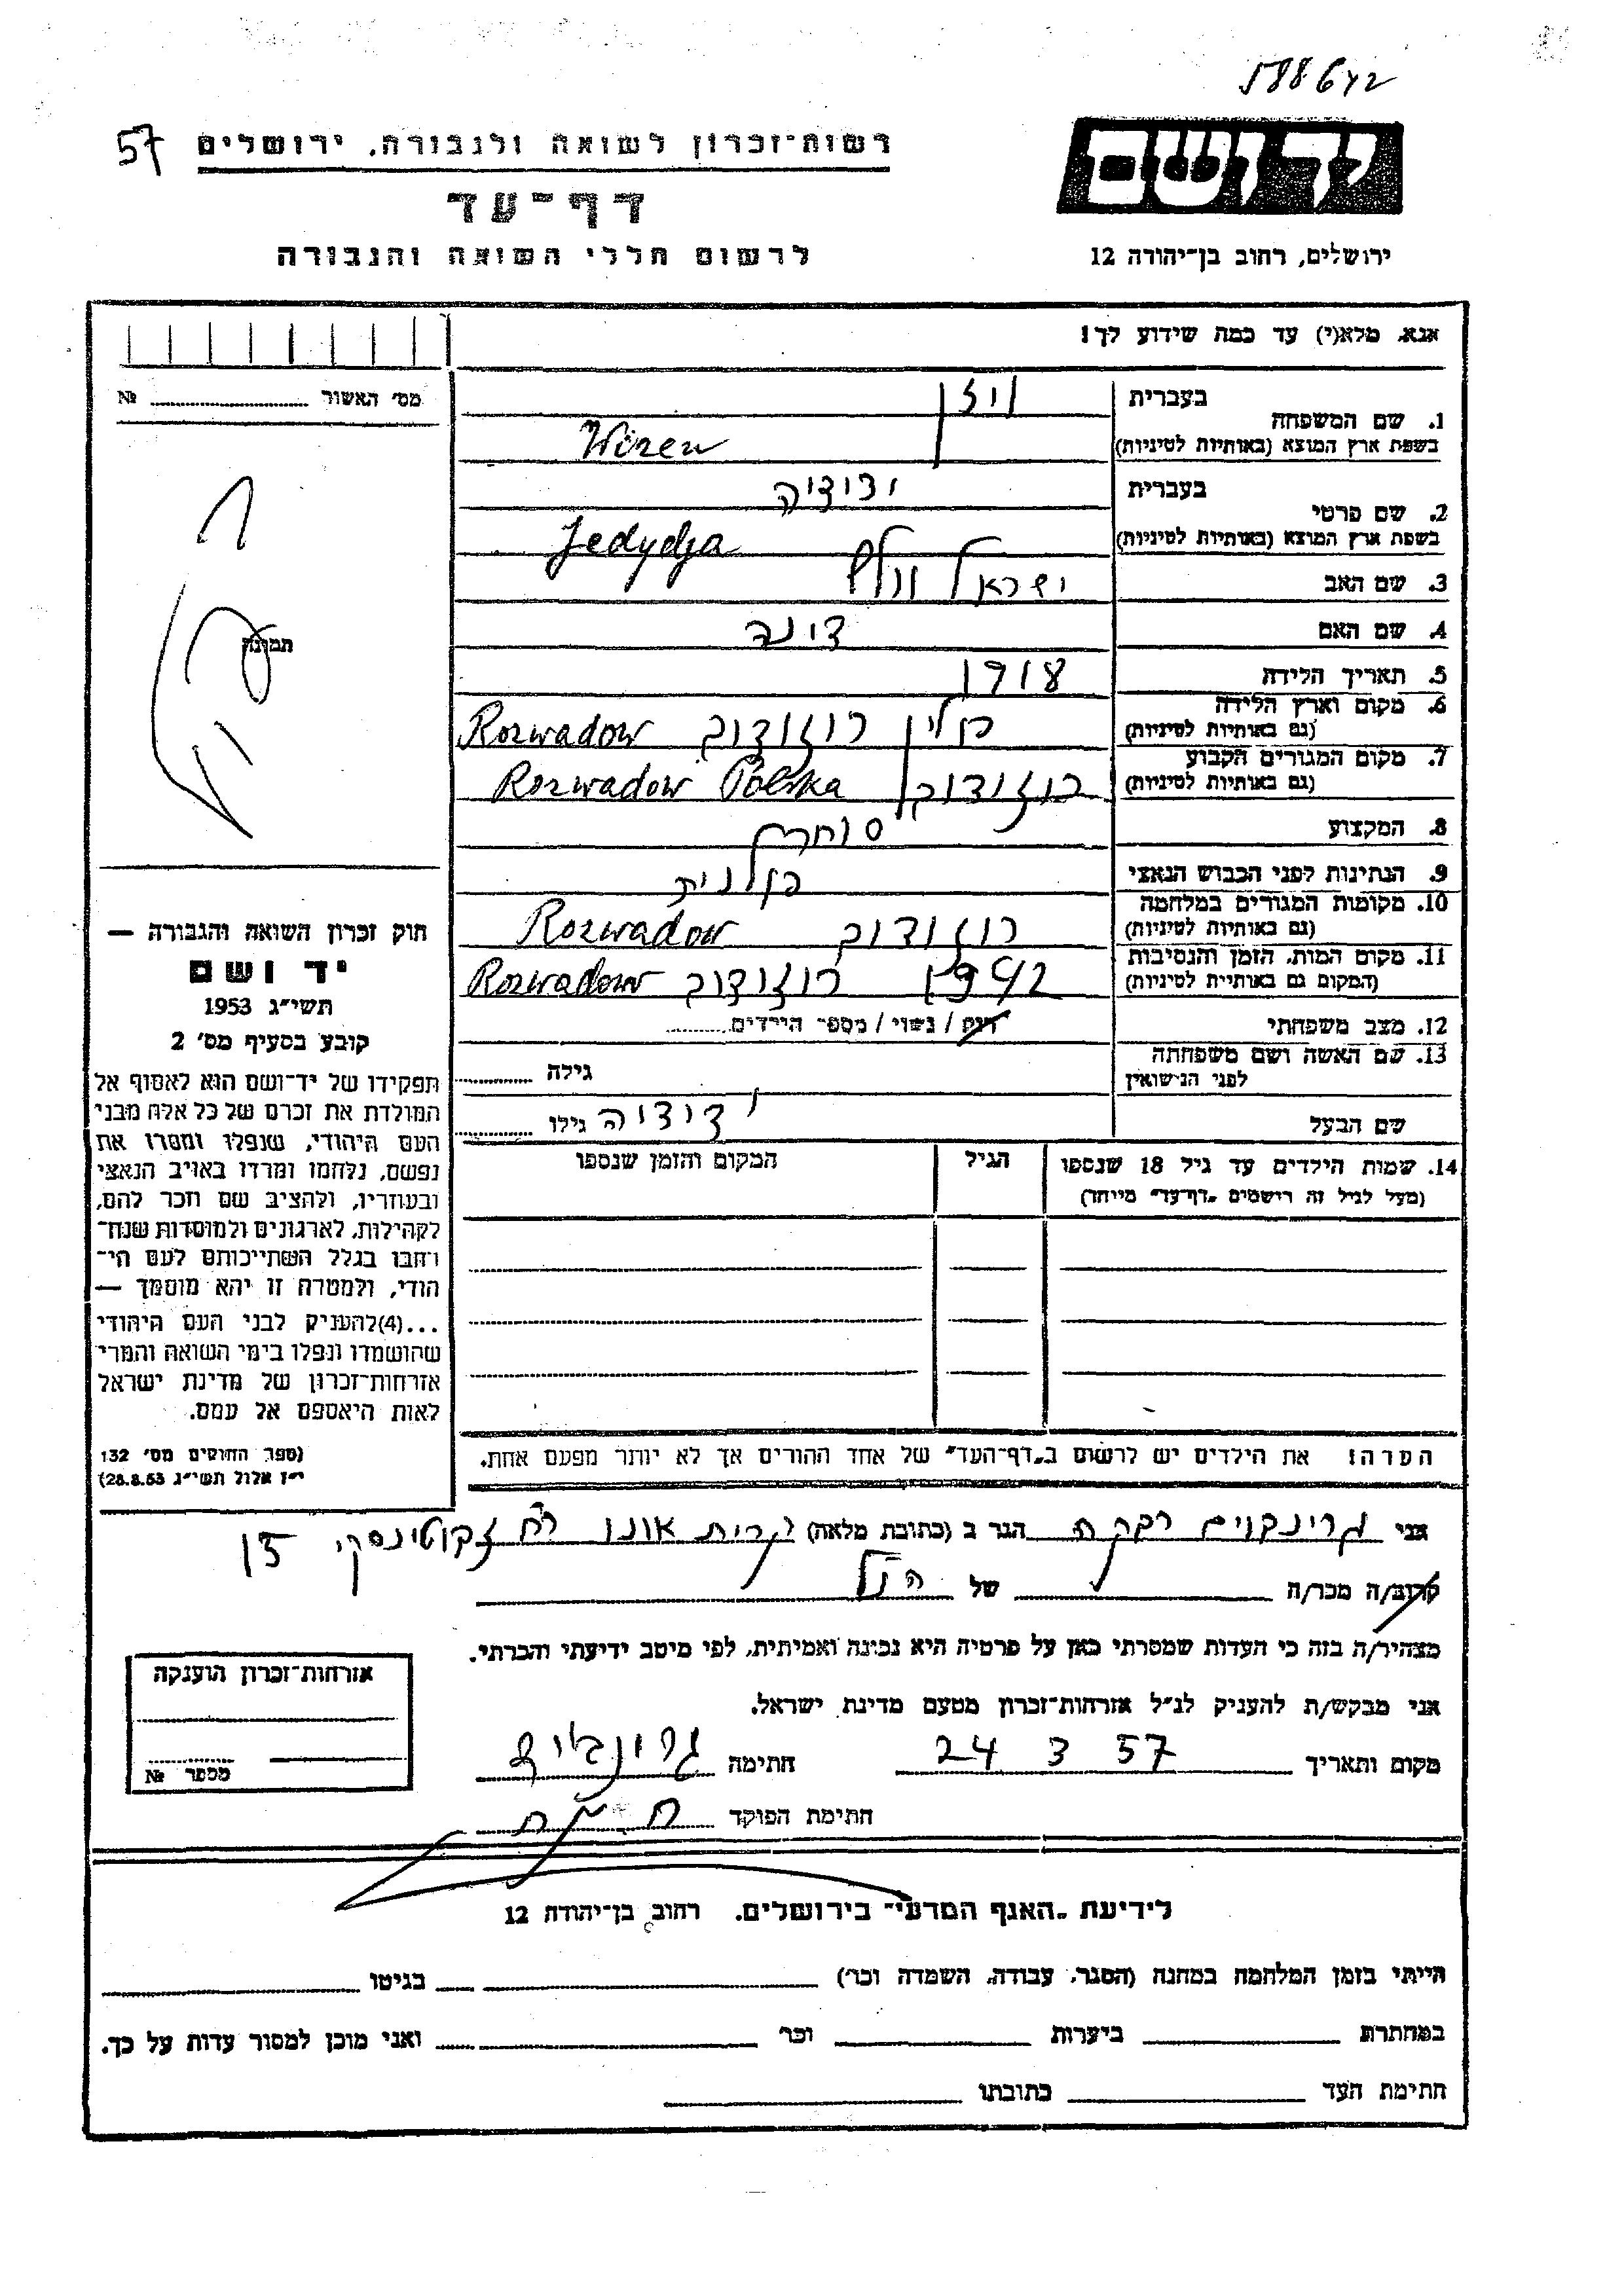 588642
57
רשות־זכרון לשואה ולגבורה, ירושלים
יד ושם
דף־עד
לרשום חללי השואה והגבורה
ירושלים, רחוב בן־יהודה 12
אנא, מלא(י) עד כמה שידוע לך!
מס׳ האשור № 
בעברית
1. שם המשפחה
בשפת ארץ המוצא (באותיות לטיניות)
ויזן
Wizen
בעברית
2. שם פרטי
בשפת ארץ המוצא (באותיות לטיניות)
ידידיה
Jedydja
3. שם האב ישראל וולף
4. שם האם דינה
5. תאריך הלידה 1918
6. מקום וארץ הלידה
(גם באותיות לטיניות)
פולין רוזודוב Rozwadow
7. מקום המגורים הקבוע
(גם באותיות לטיניות)
רוזודוב Rozwadow Polska
8. המקצוע
9. הנתינות לפני הכבוש הנאצי פולנית
10. מקומות המגורים במלחמה
(גם באותיות לטיניות)
רוזודוב Rozwadow
11. מקום המות, הזמן והנסיבות
(המקום גם באותיות לטיניות)
1942 רוזודוב Rozwadow
12. מצב משפחתי רווק / נשוי / מספר הילדים
13. שם האשה ושם משפחתה
לפני הנישואין
גילה
שם הבעל ידידיה גילו
14. שמות הילדים עד גיל 18 שנספו
(מעל לגיל זה רישמים „דף־עד״ מייחד)
הגיל
המקום והזמן שנספו
הערה: את הילדים יש לרשום ב„דף־העד״ של אחד ההורים אך לא יותר מפעם אחת.
תמונה
חוק זכרון השואה והגבורה —
יד ושם
תשי״ג 1953
קובע בסעיף מס׳ 2
תפקידו של יד־ושם הוא לאסוף אל
המולדת את זכרם של כל אלה מבני
העם היהודי, שנפלו ומסרו את
נפשם, נלחמו ומרדו באויב הנאצי
ובעוזריו, ולהציב שם וזכר להם,
לקהילות, לארגונים ולמוסדות שנח־
רחבו בגלל השתייכותם לעם הי־
הודי, ולמטרה זו יהא מוסמך —
...(4)להעניק לבני העם היהודי
שהושמדו ונפלו בימי השואה והמרי
אזרחות־זכרון של מדינת ישראל
לאות היאספם אל עמם.
(ספר החוקים מס׳ 132
י״ז אלול תשי״ג 28.8.53)
אני גרינבוים רבקה הגר ב (כתובת מלאה) קרית אונו רח׳ זבוטינסקי 15
קרוב/ה מכר/ה של הנ״ל
מצהיר/ה בזה כי העדות שמסרתי כאן על פרטיה היא נכונה ואמיתית, לפי מיטב ידיעתי והכרתי.
אני מבקש/ת להעניק לנ״ל אזרחות־זכרון מטעם מדינת ישראל.
מקום ותאריך 24 3 57 חתימה
חתימת הפוקד
אזרחות־זכרון הוענקה
מספר №
לידיעת „האגף המדעי״ בירושלים, רחוב בן־יהודה 12
הייתי בזמן המלחמה במחנה (הסגר, עבודה, השמדה וכו׳) בגיטו
במחתרת ביערות וכו׳ ואני מוכן למסור עדות על כך.
חתימת העד כתובתו